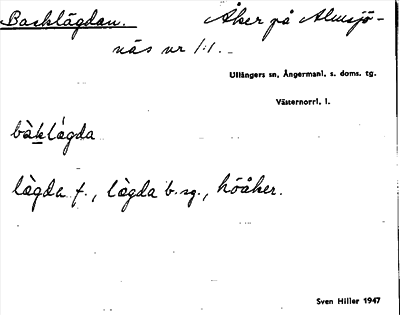 Backlägdan. Åker på Almsjö-
näs nr 1:1.
Ullångers sn, Ångermanl. s. doms. tg.
Västernorrl. l.
bàklǻgda
lǻgda f., lǻgda b. sg., höåker.
Sven Hiller 1947